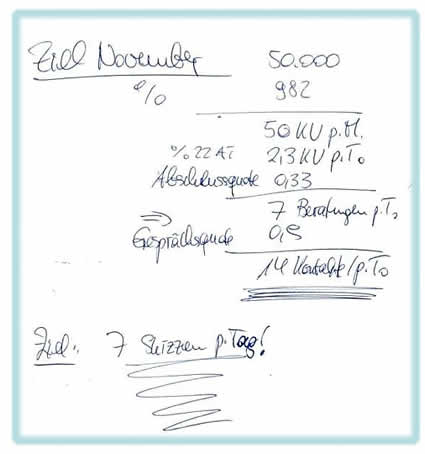 Ziel November 50.000
% 982
50 KV p.M.
% 22 AT 2,3 KV p.T.
Abschlussquote 0,33
7 Beratungen p.T.
Gesprächsquote 0,5
14 Kontakte/p.T.
Ziel: 7 Skizzen p. Tag!